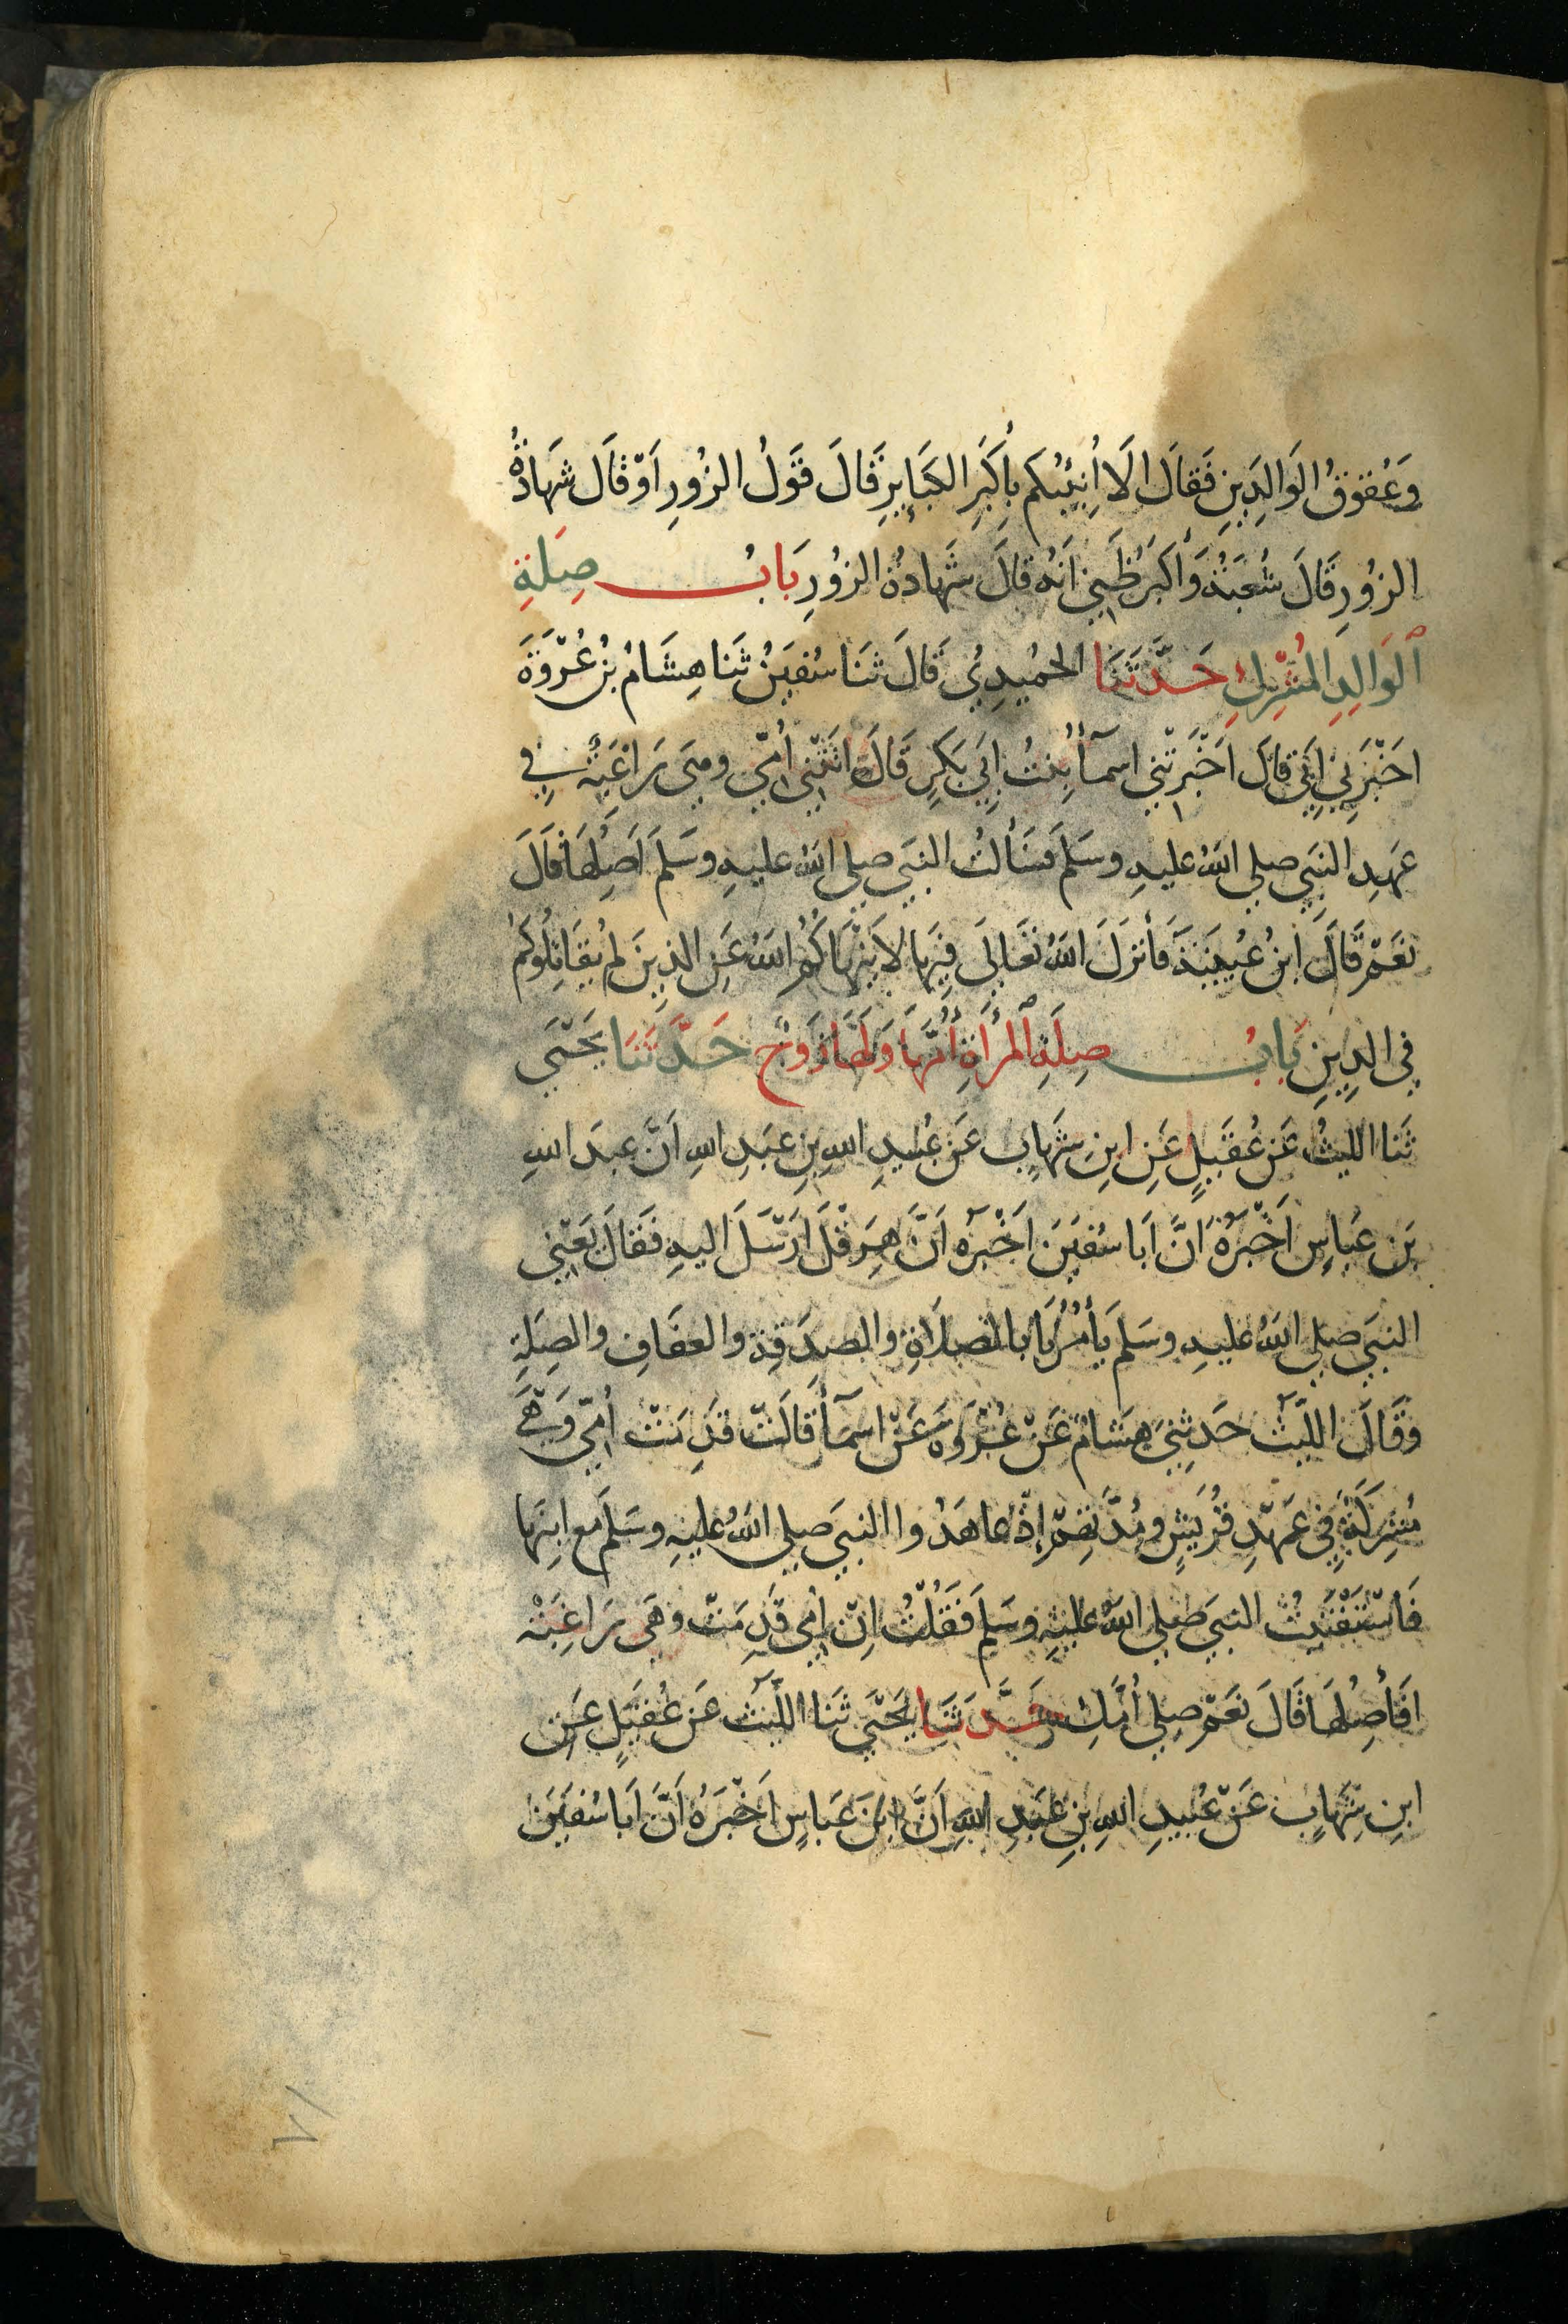 وَعُقُوقُ الوَالِدَينِ فَقَالَ الَا اُنَبِّئُكُم بِاَكبَرِ الكَبَايِرِ قَالَ قَولُ الزُورِ اَو قَال شَهَادَةُ
الزُورِ قَالَ شُعبَةُ وَأكبَرُ ظَنِي اَنَهُ قَالَ شَهادَةُ الزُورِ بَابُ صِلَةِ
ٱلوَالِدِ المُشرِكِ حَدَّثَنَا الحُمَيدِيُ قَالَ ثَنَا سُفيَنُ ثَنَا هِشَامُ بنُ عُروَةَ
اخبَرَنِي اَبِي قَالَ اَخبَرَتنِي اسمآأ بِنتُ اَبِي بَكرٍ قَالَت اتَتنِي اُمِي وهِيَ رَاغِبَةٌ فِي
عَهدِ النَبِي صلي اللهُ عليهِ وسَلمَ فَسَألتُ النبَي صلي اللهُ عليهِ وسَلمَ اَصِلُهَا قَالَ
نعَم قَالَ ابنُ عُيَينَةَ فَأنزَلَ اللهُ تعَالَي فِيهَا لا يَنهَاكُمُ اللهُ عَنِ الذِينَ لم يُقَاتِلُوكُم
فِي الدِينِ بَابُ صِلَةِ ٱلمرأةِ أُمَّهَا وَلَهَا زَوجٌ حَدَّثَنَا يَحيَي
ثَنَا الليثُ عَن عُقَيلٍ عَنِ ابنِ شِهَابٍ عَن عُبَيدِ اللهِ بنِ عَبدِ اللهِ اَنَّ عبدَ اللهِ
بَن عبَاسٍ اَخبَرَهُ اَنَّ اَبَا سُفيَنَ اَخبَرَه اَنَّ هِرَقلَ اَرسَلَ اليهِ فَقَالَ يَعنِي
النبَي صلي اللهُ عليهِ وسَلم يَأمُرُنَا بالصَلاَةِ والصَدَقةِ والعفَافِ والصِلَةِ
وَقَالَ اللَيثُ حَدثنِي هِشَامُ عَن عُروَةَ عَن اسمَآأ قَالَت قَدِمَت اُمِي وَهِيَ
مُشرِكَةٌ فِي عَهدِ قُرَيشٍ ومُدَّتِهِم إذ عاهَدُوا النبيَ صلي اللهُ عليهِ وسَلمَ مع ابنِهَا
فَاستَفتَيتُ النبيَ صلي اللهُ عليهِ وسَلم فَقُلتُ اِنّ اُمِي قَدِمَت وهَي رَاغِبَةٌ
افَأصِلُهَا قَالَ نعَم صِلي اُمَّكِ حَدَّثَنَا يَحيَي ثَنَا اللَيثُ عَن عُقَيلٍ عَنِ
ابنِ شِهَابٍ عَن عُبَيدِ اللهِ بنِ عَبدِ اللهِ اَنَّ ابنَ عَبَاسٍ اَخبَرَهُ اَنَّ اَبَا سُفيَنَ